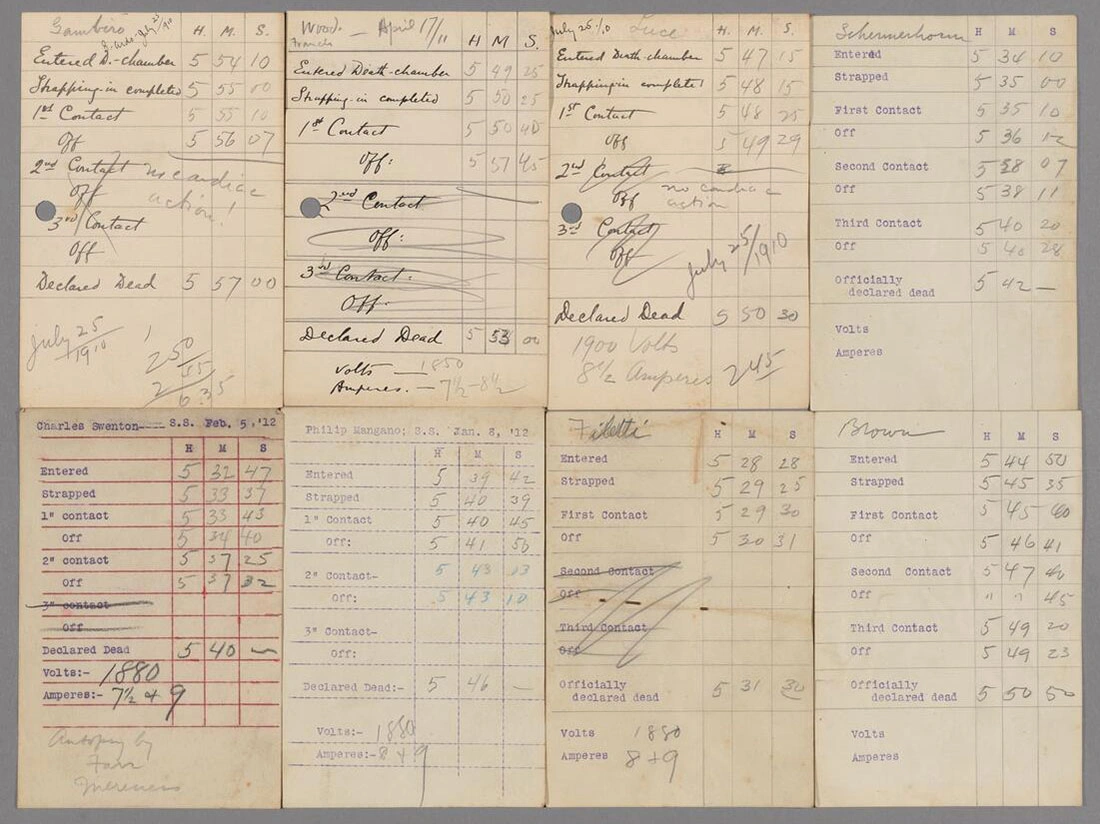 Gambiro H. M. S.
July 25/1910
Entered D.-chamber 5 54 10
Strapping-in completed 5 55 00
1st Contact 5 55 10
Off 5 56 07
2nd Contact no cardiac
Off action!
3rd Contact
Off
Declared Dead 5 57 00
July 25/1910
2 50
55
2 6 35
Wood. — April 17/11
H M S.
Entered Death-chamber 5 49 25
Strapping-in completed 5 50 25
1st Contact 5 50 40
Off: 5 51 45
2nd Contact
Off:
3rd Contact:
Off:
Declared Dead 5 53 00
Volts — 1850
Amperes. — 7½-8½
July 25/10 Luce H. M. S.
Entered Death-chamber 5 47 15
Strapping in completed 5 48 15
1st Contact 5 48 25
Off 5 49 29
2nd Contact
Off no cardiac
action
3rd Contact
Off
July 25/1910
Declared Dead 5 50 30
1900 Volts
8½ Amperes 2 45
Schermerhorn H M S
Entered 5 34 10
Strapped 5 35 00
First Contact 5 35 10
Off 5 36 12
Second Contact 5 38 07
Off 5 38 11
Third Contact 5 40 20
Off 5 40 28
Officially
declared dead 5 42 —
Volts
Amperes
Charles Swenton---- S.S. Feb. 5, '12
H M S
Entered 5 32 47
Strapped 5 33 37
1" contact 5 33 43
Off 5 34 40
2" contact 5 37 25
Off 5 37 32
3" contact
Off
Declared Dead 5 40 —
Volts:- 1880
Amperes:- 7½ + 9
Autopsy by
Farr
Philip Mangano; S.S. Jan. 8, '12
H M S
Entered 5 39 42
Strapped 5 40 39
1" Contact 5 40 45
Off: 5 41 50
2" Contact- 5 43 03
Off: 5 43 10
3" Contact-
Off:
Declared Dead:- 5 46 —
Volts:- 1880
Amperes:- 8 + 9
Filetti H M S
Entered 5 28 28
Strapped 5 29 25
First Contact 5 29 30
Off 5 30 31
Second Contact
Off
Third Contact
Off
Officially
declared dead 5 31 30
Volts 1880
Amperes 8 + 9
Brown H M S
Entered 5 44 50
Strapped 5 45 35
First Contact 5 45 40
Off 5 46 41
Second Contact 5 47 40
Off " " 45
Third Contact 5 49 20
Off 5 49 23
Officially
declared dead 5 50 50
Volts
Amperes